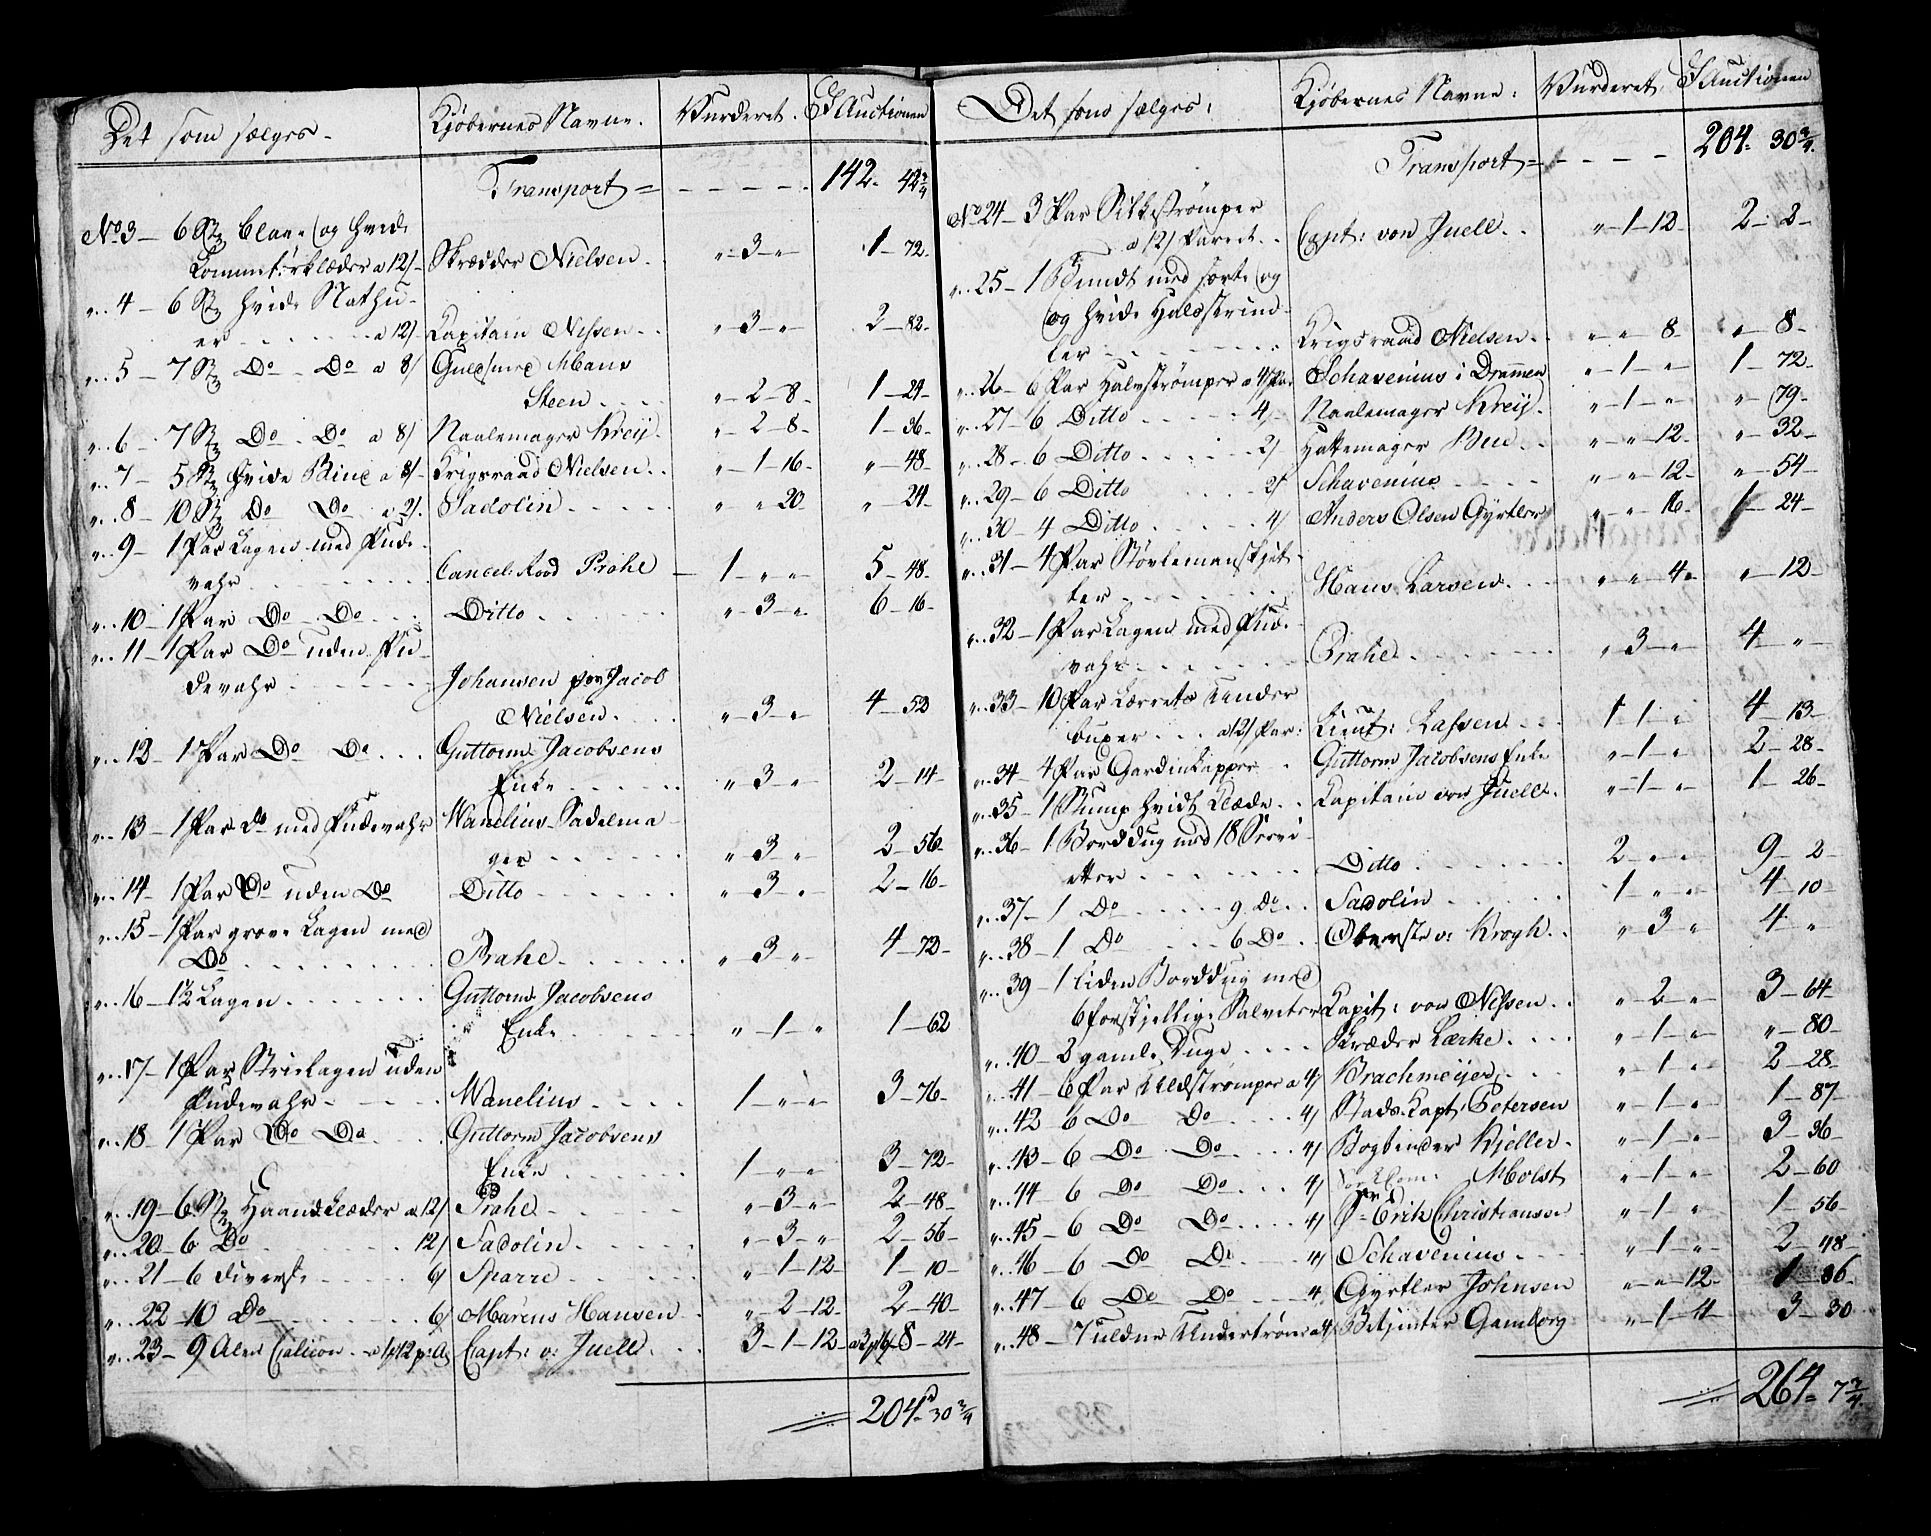 Det som sælges.	Kjøbernes Navne.	Vurderet.	I Auctionen
Transport = - - - -	142. 42 3/4
No 3 - 6 St: blaae og hvide
Lommetørklæder a 12/-	Skrædder Nielsen	" - 3 - "	1 - 72.
".. 4 - 6 St: hvide Nathu-
er - - - a 12/	Kapitain Nissen	" - 3 - "	2 - 82.
".. 5 - 7 St: Do - Do a 8/	Hans
Steen	" - 2 - 8.	1 - 24-
".. 6 - 7 St: Do - Do a 8/	Naalemager Kreij.	" - 2 - 8.	1 - 36.
".. 7 - 5 St: hvide a 8/	Krigsraad Nielsen	" - 1 - 16.	" - 48.
".. 8 - 10 St: Do Do a 2/.	Sadolin	" " 20	" - 24.
".. 9 - 1 Par Lagen med Pude-
vahr	Cancel: Raad Prahl	1 - " - "	5 - 48.
".. 10 - 1 Par Do - Do	Ditto	" - 3 - "	6 - 16-
".. 11 - 1 Par Do uden Pu-
devahr	Johansen for Jacob
Nielsen	" - 3 - "	4 - 52
".. 12 - 1 Par Do Do	Guttorm Jacobsens
Enke	" - 3 - "	2 - 14-
".. 13 - 1 Par Do med Pudevahr	Wanelius Sadelma-
ger	" - 3 - "	2 - 56-
".. 14 - 1 Par Do uden Do	Ditto	" - 3 - "	2 - 16-
".. 15 - 1 Par grove Lagen med
Do	Prahl	" - 3 - "	4 - 72-
".. 16 - 1 1/2 Lagen	Guttorm Jacobsens
Enke	" - 1 - "	1 - 62
".. 17 - 1 Par Strielagen uden
Pudevahr	Wanelius	1 - " - "	3 - 76-
".. 18 - 1 Par Do Do	Guttorm Jacobsens
Enke	1 - " - "	3 - 72-
".. 19 - 6 St: Haandklæder a 12/	Prahl	" - 3 - "	2 - 48-
".. 20 - 6 Do 12/	Sadolin	" - 3 - "	2 - 56-
".. 21 - 6 diverse 6/	Sparre	" - 1 - 12-	1 - 10-
".. 22 - 10 Do 6/	Marcus Hansen	" - 2 - 12-	2 - 40-
".. 23 - 9 Alen	Capt: v: Juell	3 - 1 - 12-	8 - 24-
204. 30 3/4
Det som sælges:	Kjøbernes Navne:	Vurderet:	I Auctionen
Transport = - - - -	204. 30 3/4.
No 24 - 3 Par Silkestrømper
a 12/ Parret	Capt: von Juell	" - 1 - 12-	2 - 2-
".. 25 - 1 Bundt med sorte og
og hvide Halsstrim-
ler	Krigsraad Nielsen	" - " 8-	" - 8-
".. 26 - 6 Par Halvstrømper a 4/ Par	Schavenius i Drammen	" - 1 - "	1 - 72-
".. 27 - 6 Ditto 4/	Naalemager Kreij.	" - 1 - "	" - 79-
".. 28 - 6 Ditto 2/	Hattemager	" - " 12-	" - 32-
".. 29 - 6 Ditto 2/	Schavenius	" - " 12-	" - 54-
".. 30 - 4 Ditto 4/	Anders Olsen Gyrtler	" - " 16-	1 - 24-
".. 31 - 4 Par Støvlemanskjet-
ter	Hans Larsen	" - " 4-	" - 12-
".. 32 - 1 Par Lagen med Pude-
vahr	Prahl	" - 3 - "	4 - "
".. 33 - 10 Par Lærrets Under-
buxer a 12/ Par:	Lieut: Lassen	1 1 - "	4 - 13-
".. 34 - 4 Par Gardinkapper	Guttorm Jacobsens Enke	" - 1 - "	2 - 28-
".. 35 - 1 Stump hvidt Klæde	Kapitain von Juell.	" - 1 - "	1 - 26-
".. 36 - 1 Borddug med 18 Servi-
etter	Ditto	2 - " - "	9 - 2-
".. 37 - 1 Do 9 Do	Sadolin	1 - " - "	4 - 10-
".. 38 - 1 Do 6 Do	Oberste v: Krogh	" 3 "	4 - "
".. 39 - 1 liden Borddug med
6 forskjellige Salvetter	Kapit: von Nissen	" - 2 - "	3 - 64-
".. 40 - 2 gamle Duge	Skræder Lærke	" - 1 - "	" - 80-
".. 41 - 6 Par Uldstrømper a 4/	Brachmeijer	" - 1 - "	2 - 28-
".. 42 - 6 Do Do 4/	Stads-Capt: Petersen	" - 1 - "	1 - 87-
".. 43 - 6 Do Do 4/	Bogbinder Kjeller	" - 1 - "	3 - 36-
".. 44 - 6 Do Do 4/	Moldt	" - 1 - "	2 - 60
".. 45 - 6 Do Do 4/	Erik Christiansen	" - 1 - "	1 - 56
".. 46 - 6 Do Do 4/	Schavenius	" - 1 - "	2 - 48-
".. 47 - 6 Do Do 4.	Gyrtler Johnsen	" - " 12-	1 - 36-
".. 48 - 7 uldne a 4/	Betjenter Gamborg	" - 1 - 4	3 - 30
264 = 7 3/4